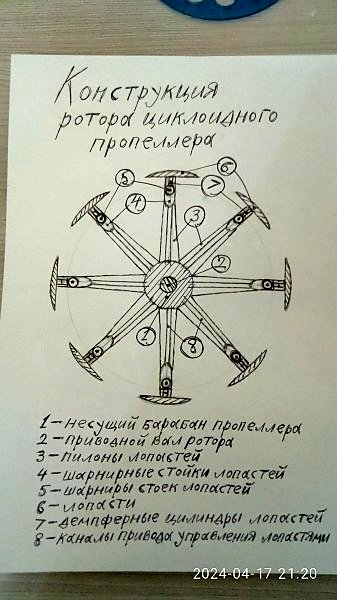 Конструкция
ротора циклоидного
пропеллера
5
6
7
4
3
2
1
8
1 – несущий барабан пропеллера
2 – приводной вал ротора
3 – пилоны лопастей
4 – шарнирные стойки лопастей
5 – шарниры стоек лопастей
6 – лопасти
7 – демпферные цилиндры лопастей
8 – каналы привода управления лопастями
2024-04-17 21:20